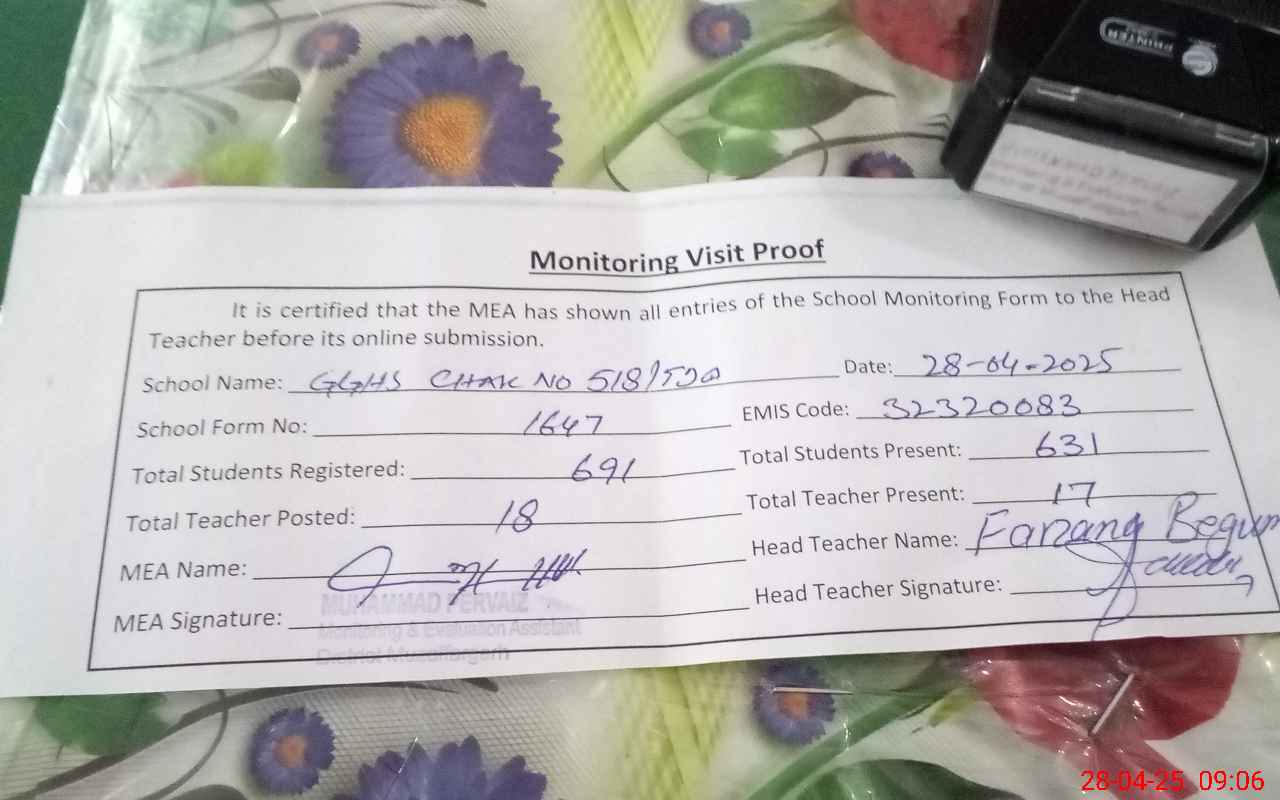 PRINTER
Monitoring Visit Proof
It is certified that the MEA has shown all entries of the School Monitoring Form to the Head
Teacher before its online submission.
School Name: GGHS CHAK NO 518/TDA Date: 28-04-2025
School Form No: 1647 EMIS Code: 32320083
Total Students Registered: 691 Total Students Present: 631
Total Teacher Posted: 18 Total Teacher Present: 17
MEA Name: Head Teacher Name: Farzana Begum
MEA Signature: Head Teacher Signature:
MUHAMMAD PERVAIZ
Monitoring & Evaluation Assistant
District Muzaffargarh
28-04-25 09:06